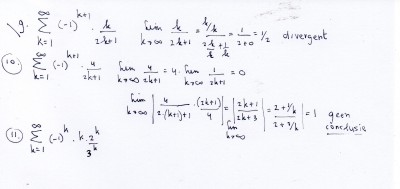 9. ∞ Σ k=1 (-1)^{k+1} · k/(2k+1) lim k→∞ k/(2k+1) = (k/k)/(2k/k + 1/k) = 1/(2+0) = 1/2 divergent
10. ∞ Σ k=1 (-1)^{k+1} · 4/(2k+1) lim k→∞ 4/(2k+1) = 4 · lim k→∞ 1/(2k+1) = 0
lim k→∞ | 4/(2·(k+1)+1) · (2k+1)/4 | = lim k→∞ | (2k+1)/(2k+3) | = | (2+1/k)/(2+3/k) | = 1 geen
conclusie
11. ∞ Σ k=1 (-1)^k · k·2^k/3^k